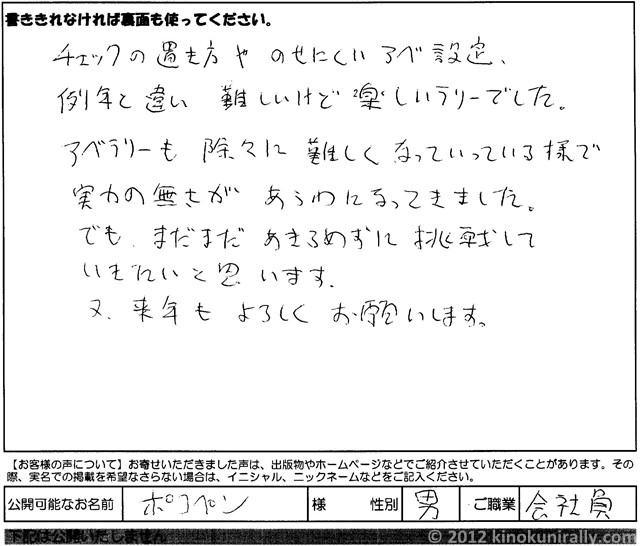 書ききれなければ裏面も使ってください。
チェックの置き方や のせにくいアベ設定、
例年と違い 難しいけど楽しいラリーでした。
アベラリーも 除々に 難しくなっていっている様で
実力の無さが あらわになってきました。
でも、まだまだ あきらめずに 挑戦して
いきたいと思います。
又、来年も よろしく お願いします。
【お客様の声について】お寄せいただきました声は、出版物やホームページなどでご紹介させていただくことがあります。その
際、実名での掲載を希望なさらない場合は、イニシャル、ニックネームなどをご記入ください。
公開可能なお名前 ポコペン 様 性別 男 ご職業 会社員
下記は公開いたしません
© 2012 kinokunirally.com